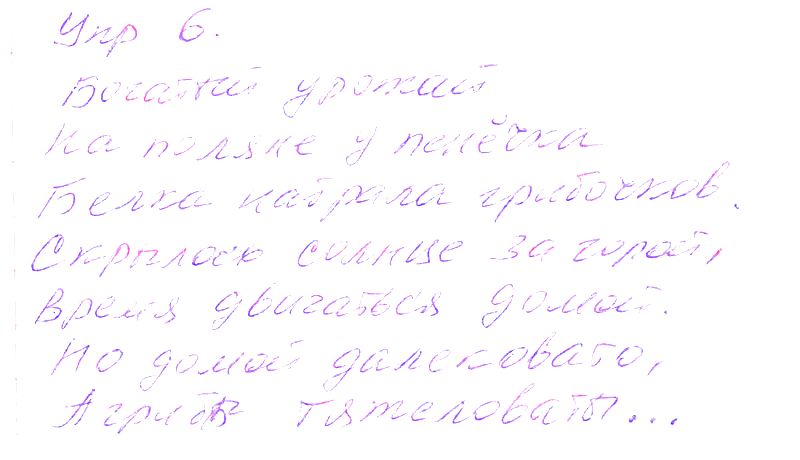 Упр 6.
Богатый урожай
На поляне у пенёчка
Белка набрала грибочков.
Скрылось солнце за горой,
Время двигаться домой.
Но домой далековато,
А грибы тяжеловаты...